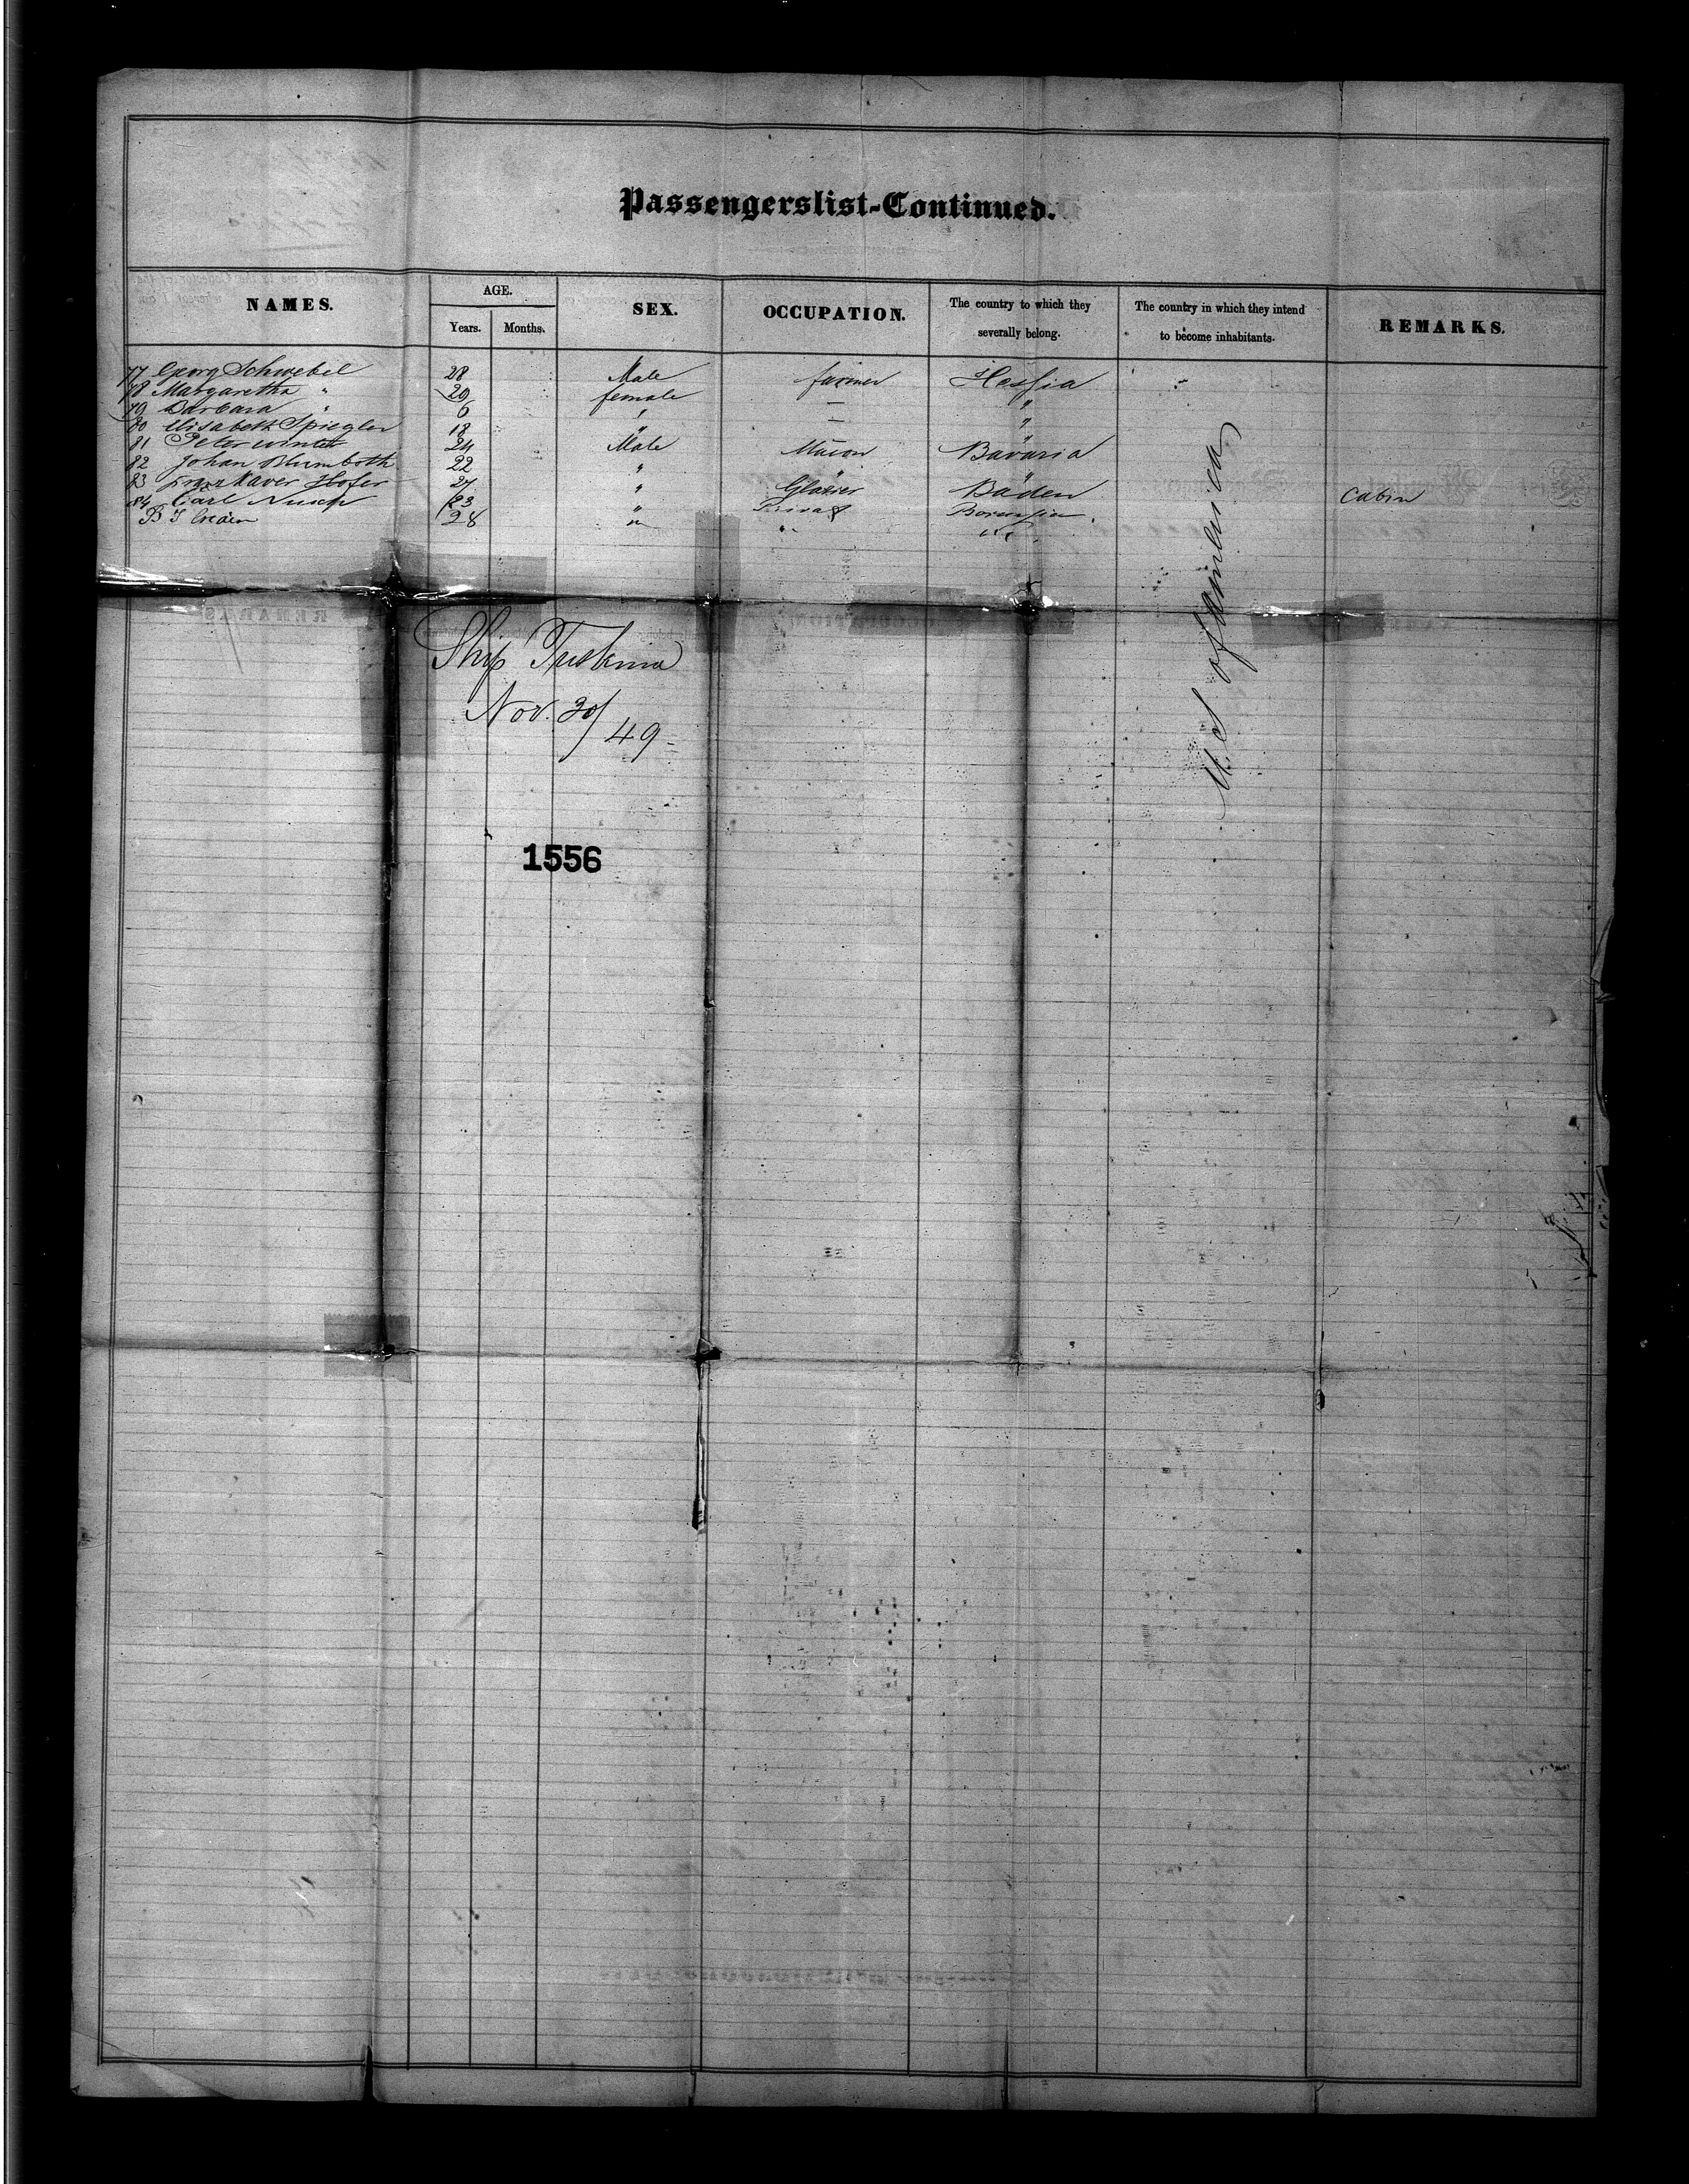 Passengerslist-Continued.
NAMES. AGE. SEX. OCCUPATION. The country to which they severally belong. The country in which they intend to become inhabitants. REMARKS.
Years. Months.
77 Georg Schwebel 28 Male farmer Hessia
78 Margaretha " 20 female — "
79 Barbara " 6 " — "
80 Elisabeth Spiegler 18 " — "
81 Peter Winter 24 Male Mason Bavaria
82 Johan Blumboth 22 " " "
83 Franz Xaver Hofer 27 " Glazier Baden
84 Carl 23 " Privat Borussia Cabin
28 " " "
U. S of america
Ship Tuskina
Nov. 30/49
1556